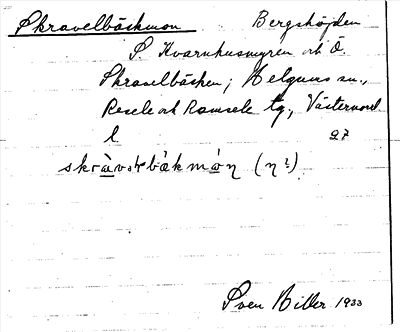 Skravelbäckmon Bergshöjden
S. Kvarnhusmyren och Ö.
Skravelbäcken; Helgums sn.,
Resele och Ramsele tg, Västernorrl
l 97
skràvəlbækmón (η²)
Sven Biller 1933